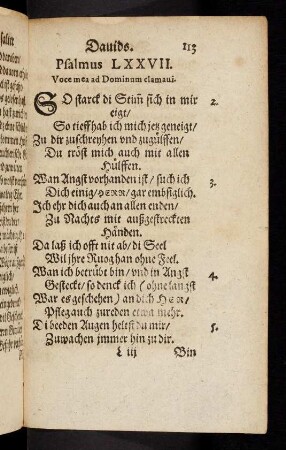 Dauids.
113
Psalmus LXXVII.
Voce mea ad Dominum clamaui.
SO starck di Stim̃ sich in mir
2.
eigt/
So tieff hab ich mich jetz geneigt/
Zu dir zuschreyhen vnd zugülffen/
Du tröst mich auch mit allen
Hülffen.
Wan Angst vorhanden ist/ such ich
3.
Dich einig/ HERR/ gar embsiglich.
Ich ehr dich auch an allen enden/
Zu Nachts mit außgestreckten
Händen.
Da laß ich offt nit ab/ di Seel
Wil ihre Ruog han ohne Feel.
Wan ich betrübt bin/ vnd in Angst
4.
Gesteckt/ so denck ich (ohne langst
War es geschehen) an dich HER/
Pfleg auch zureden etwa mehr.
Di beeden Augen heltst du mir/
5.
Zuwachen jmmer hin zu dir.
L iij
Bin